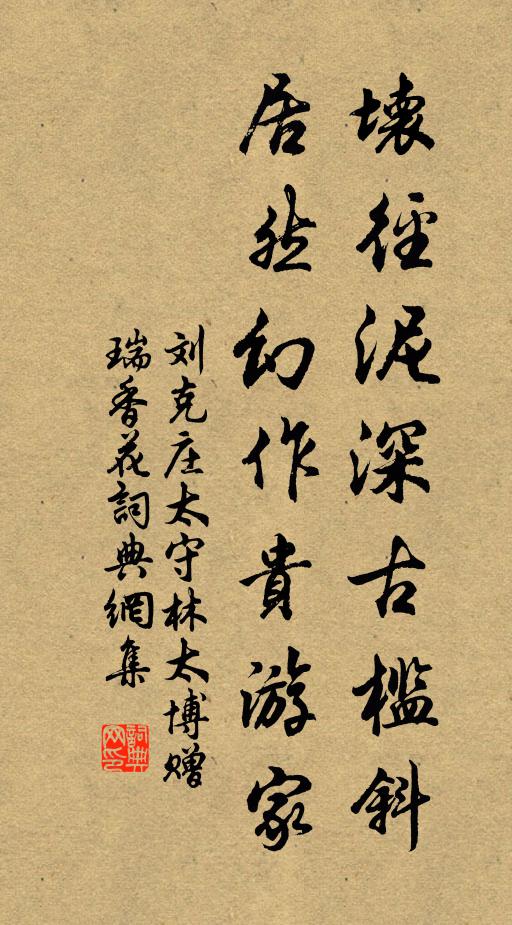 壊徑泥深古檻斜
居然幻作貴游家
刘克庄太守林太博赠
瑞香花詞典網集
詞典网印